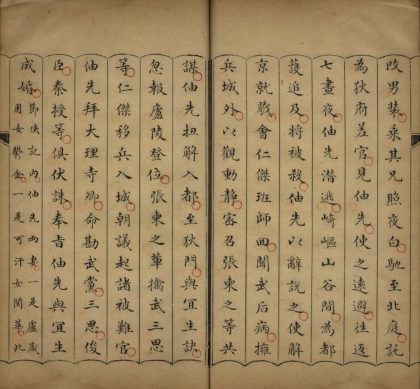 改男裝乘其兄照夜白馳至北庭託
為狄府差官見伷先使之遠避往返
七晝夜伷先潛逃崎嶇山谷間為都
護追及將被殺伷先以辭說之使解
京就戮會仁傑班師回聞武后病擁
兵城外以觀動靜密召張柬之等共
謀伷先扭解入都至狄門與宜生訣
忽報廬陵登位張柬之輩擒武三思
等仁傑移兵入城朝議起諸被難官
伷先拜大理寺卿命勘武黨三思俊
臣秦授等俱伏誅奉旨伷先與宜生
成婚節俠記內伷先兩妻一是盧歲
用女鬱金一是可汗女聞華北